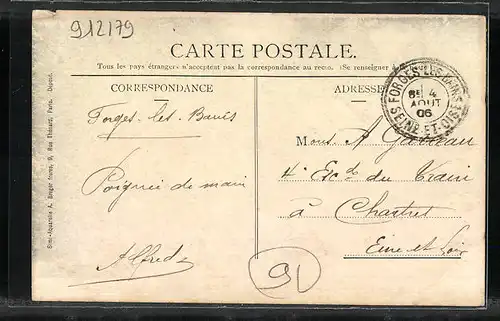 912179
CARTE POSTALE.
Tous les pays étrangers n'acceptent pas la correspondance au recto. (Se renseigner à
CORRESPONDANCE
ADRESSE
FORGES-LES-BAINS
4
AOUT
06
SEINE-ET-OISE
Forges-les-Bains
Poignée de main
Alfred
Mons. A.
4e Esc. du Train
à Chartres
Eure et Loir
91
Simi-Aquarelle A. Breger frères, 9, Rue Thénard, Paris. Déposé.